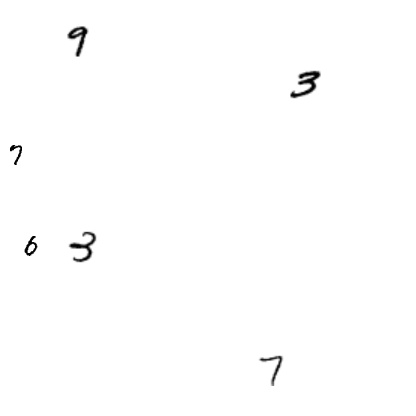 9
3
7
6 3
7